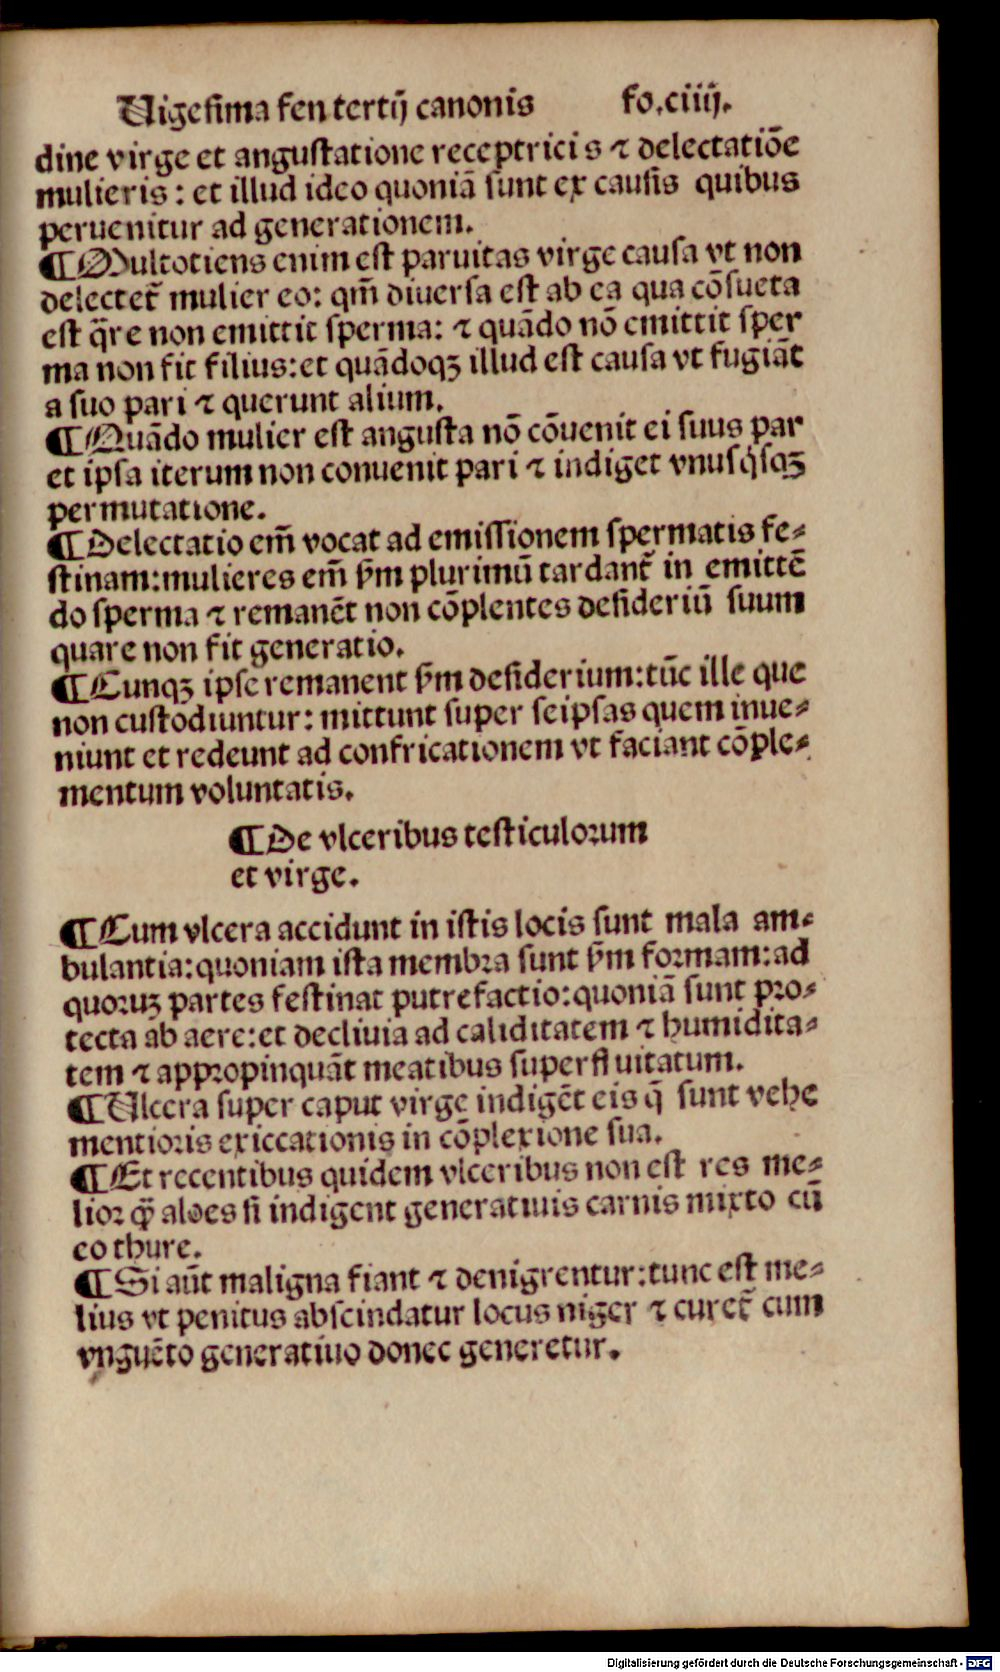 Uigesima fen tertij canonis fo.ciiij.
dine virge et angustatione receptricis ⁊ delectatiōe
mulieris : et illud ideo quoniā sunt ex causis quibus
peruenitur ad generationem.
¶ Multotiens enim est paruitas virge causa vt non
delectet̃ mulier eo: qm̃ diuersa est ab ea qua cōsueta
est q̄re non emittit sperma: ⁊ quādo nō emittit sper
ma non fit filius:et quādoqꝫ illud est causa vt fugiāt
a suo pari ⁊ querunt alium.
¶ Quādo mulier est angusta nō cōuenit ei suus par
et ipsa iterum non conuenit pari ⁊ indiget vnusq̇sqꝫ
permutatione.
¶ Delectatio em̃ vocat ad emissionem spermatis fe⸗
stinam:mulieres em̃ ẜm plurimū tardant̃ in emittē
do sperma ⁊ remanēt non cōplentes desideriū suum
quare non fit generatio.
¶ Cunqꝫ ipse remanent ẜm desiderium:tūc ille que
non custodiuntur: mittunt super seipsas quem inue⸗
niunt et redeunt ad confricationem vt faciant cōple⸗
mentum voluntatis.
¶ De vlceribus testiculorum
et virge.
¶ Cum vlcera accidunt in istis locis sunt mala am⸗
bulantia:quoniam ista membra sunt ẜm formam:ad
quoruꝫ partes festinat putrefactio:quoniā sunt pro⸗
tecta ab aere:et decliuia ad caliditatem ⁊ humidita⸗
tem ⁊ appropinquāt meatibus superfluitatum.
¶ Ulcera super caput virge indigēt eis q̄ sunt vehe
mentioris exiccationis in cōplexione sua.
¶ Et recentibus quidem vlceribus non est res me⸗
lior q̄ꝫ aloes si indigent generatiuis carnis mixto cū
eo thure.
¶ Si aūt maligna fiant ⁊ denigrentur:tunc est me⸗
lius vt penitus abscindatur locus niger ⁊ curet̃ cum
vnguēto generatiuo donec generetur.
Digitalisierung gefördert durch die Deutsche Forschungsgemeinschaft - DFG